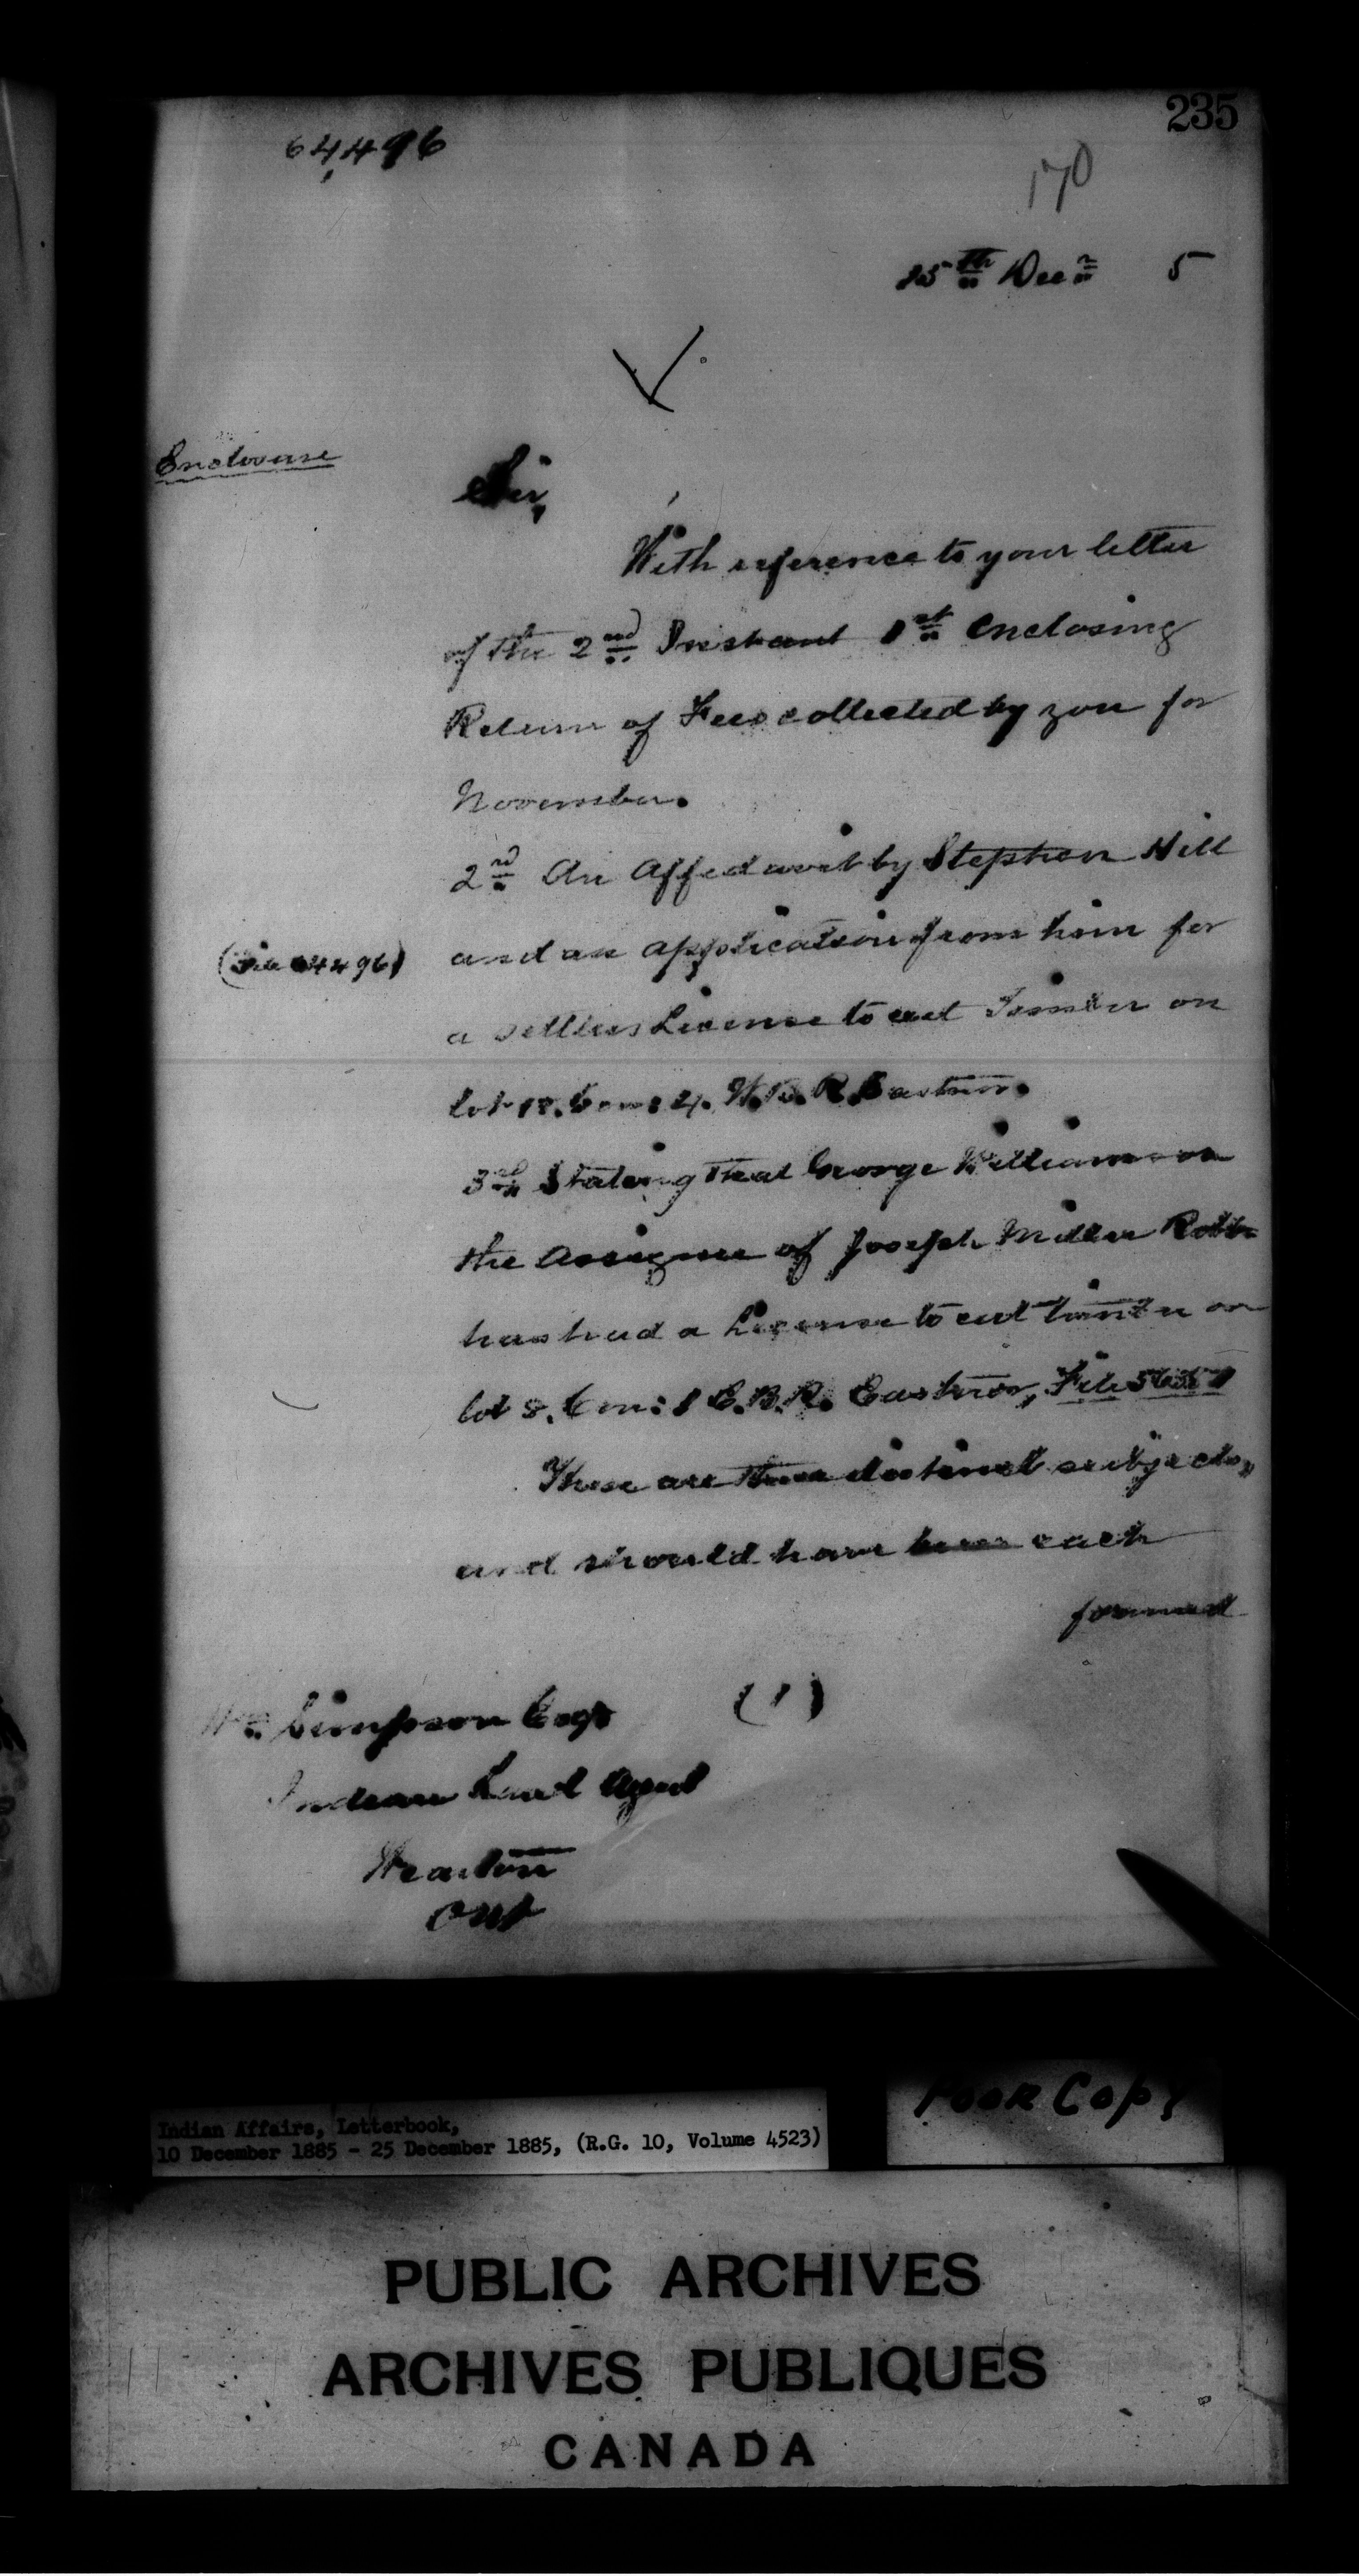 235
64,496
170
15th Decr 5
Enclosure
Sir,
With reference to your letter
of the 2nd Instant 1st enclosing
Return of Fees collected by you for
November.
2nd An Affedavit by Stephen Hill
(File 64496) and an application from him for
a settlers License to cut Timber on
lot 18. Con: 4. W.B.R. Eastnor.
3rd Stating that George Williamson
the Assignee of Joseph Miller
has had a License to cut timber on
lot 8. Con: 1 E.B.R. Eastnor, File
These are three distinct subjects,
and should have been each
formed
(1)
Wm. Simpson Esqr
Indian Land Agent
Wiarton
Ont
Poor Copy
Indian Affairs, Letterbook,
10 December 1885 - 25 December 1885, (R.G. 10, Volume 4523)
PUBLIC ARCHIVES
ARCHIVES PUBLIQUES
CANADA